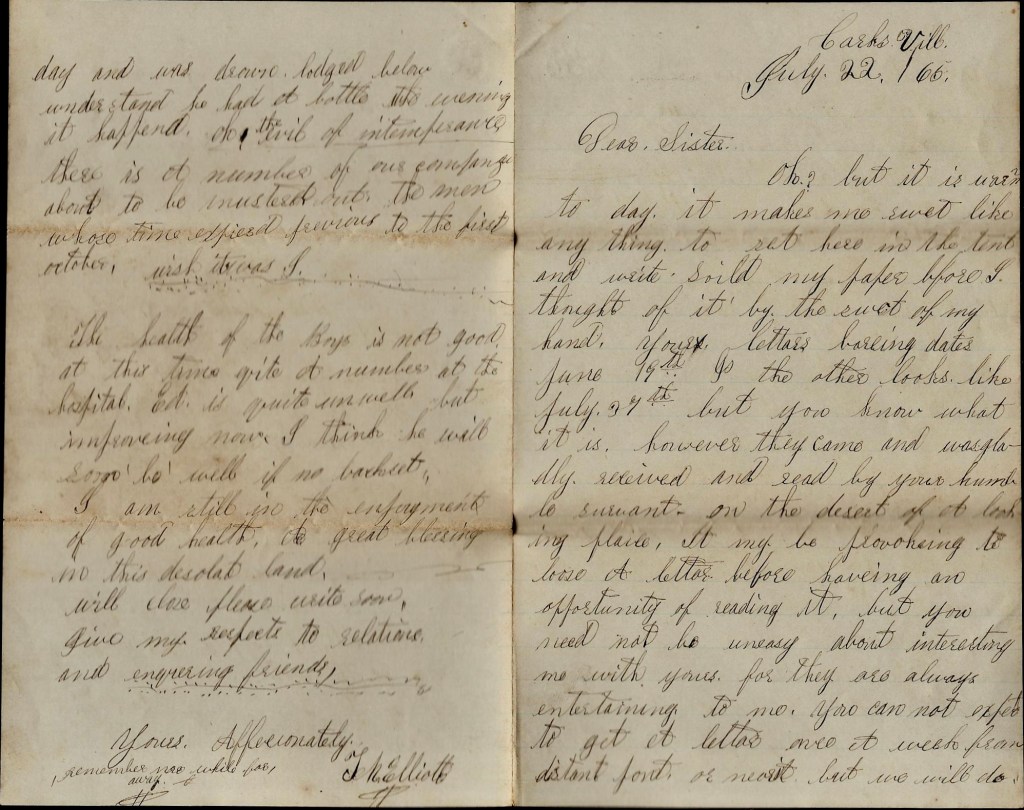 Carks Vill.
July. 22. /65.
Dear. Sister.
Oh.? but it is warm
to day. it makes me swet like
any thing. to set here in the tent
and write. soild my paper bfore I.
thought of it by the swet of my
hand. Yours. letters bareing dates
June 19th & the other looks like
July. 27th but you know what
it is. however they came and was gla-
dly. received and read by your humb
le survant. on the desert of a look
ing plaice, It my be provokeing to
loose a letter before haveing an
opportunity of reading it, but you
need not be uneasy about interesting
me with yours. for they are always
entertaining to me. You can not expec
to get a letter once a week from
distant but we will do.
day and was drown. lodged below
understand he had a bottle the evening
it happend. oh, the evil of intemperance
there is a number of our company
about to be musterd out. the men
whose time expierd previous to the first
october. wish it was I.
The health of the Boys is not good
at this time qite a number at the
hospital. Ed. is quite unwell but
improveing now. I think he will
soon be well if no backset,
I am still in the enjoyment
of good health. A great blessing
in this desolat land.
will close please write soon.
give my respects to relations
and enqrering friends,
Yours. Affecionately.
remember me while far,
away.
T. K. Elliott